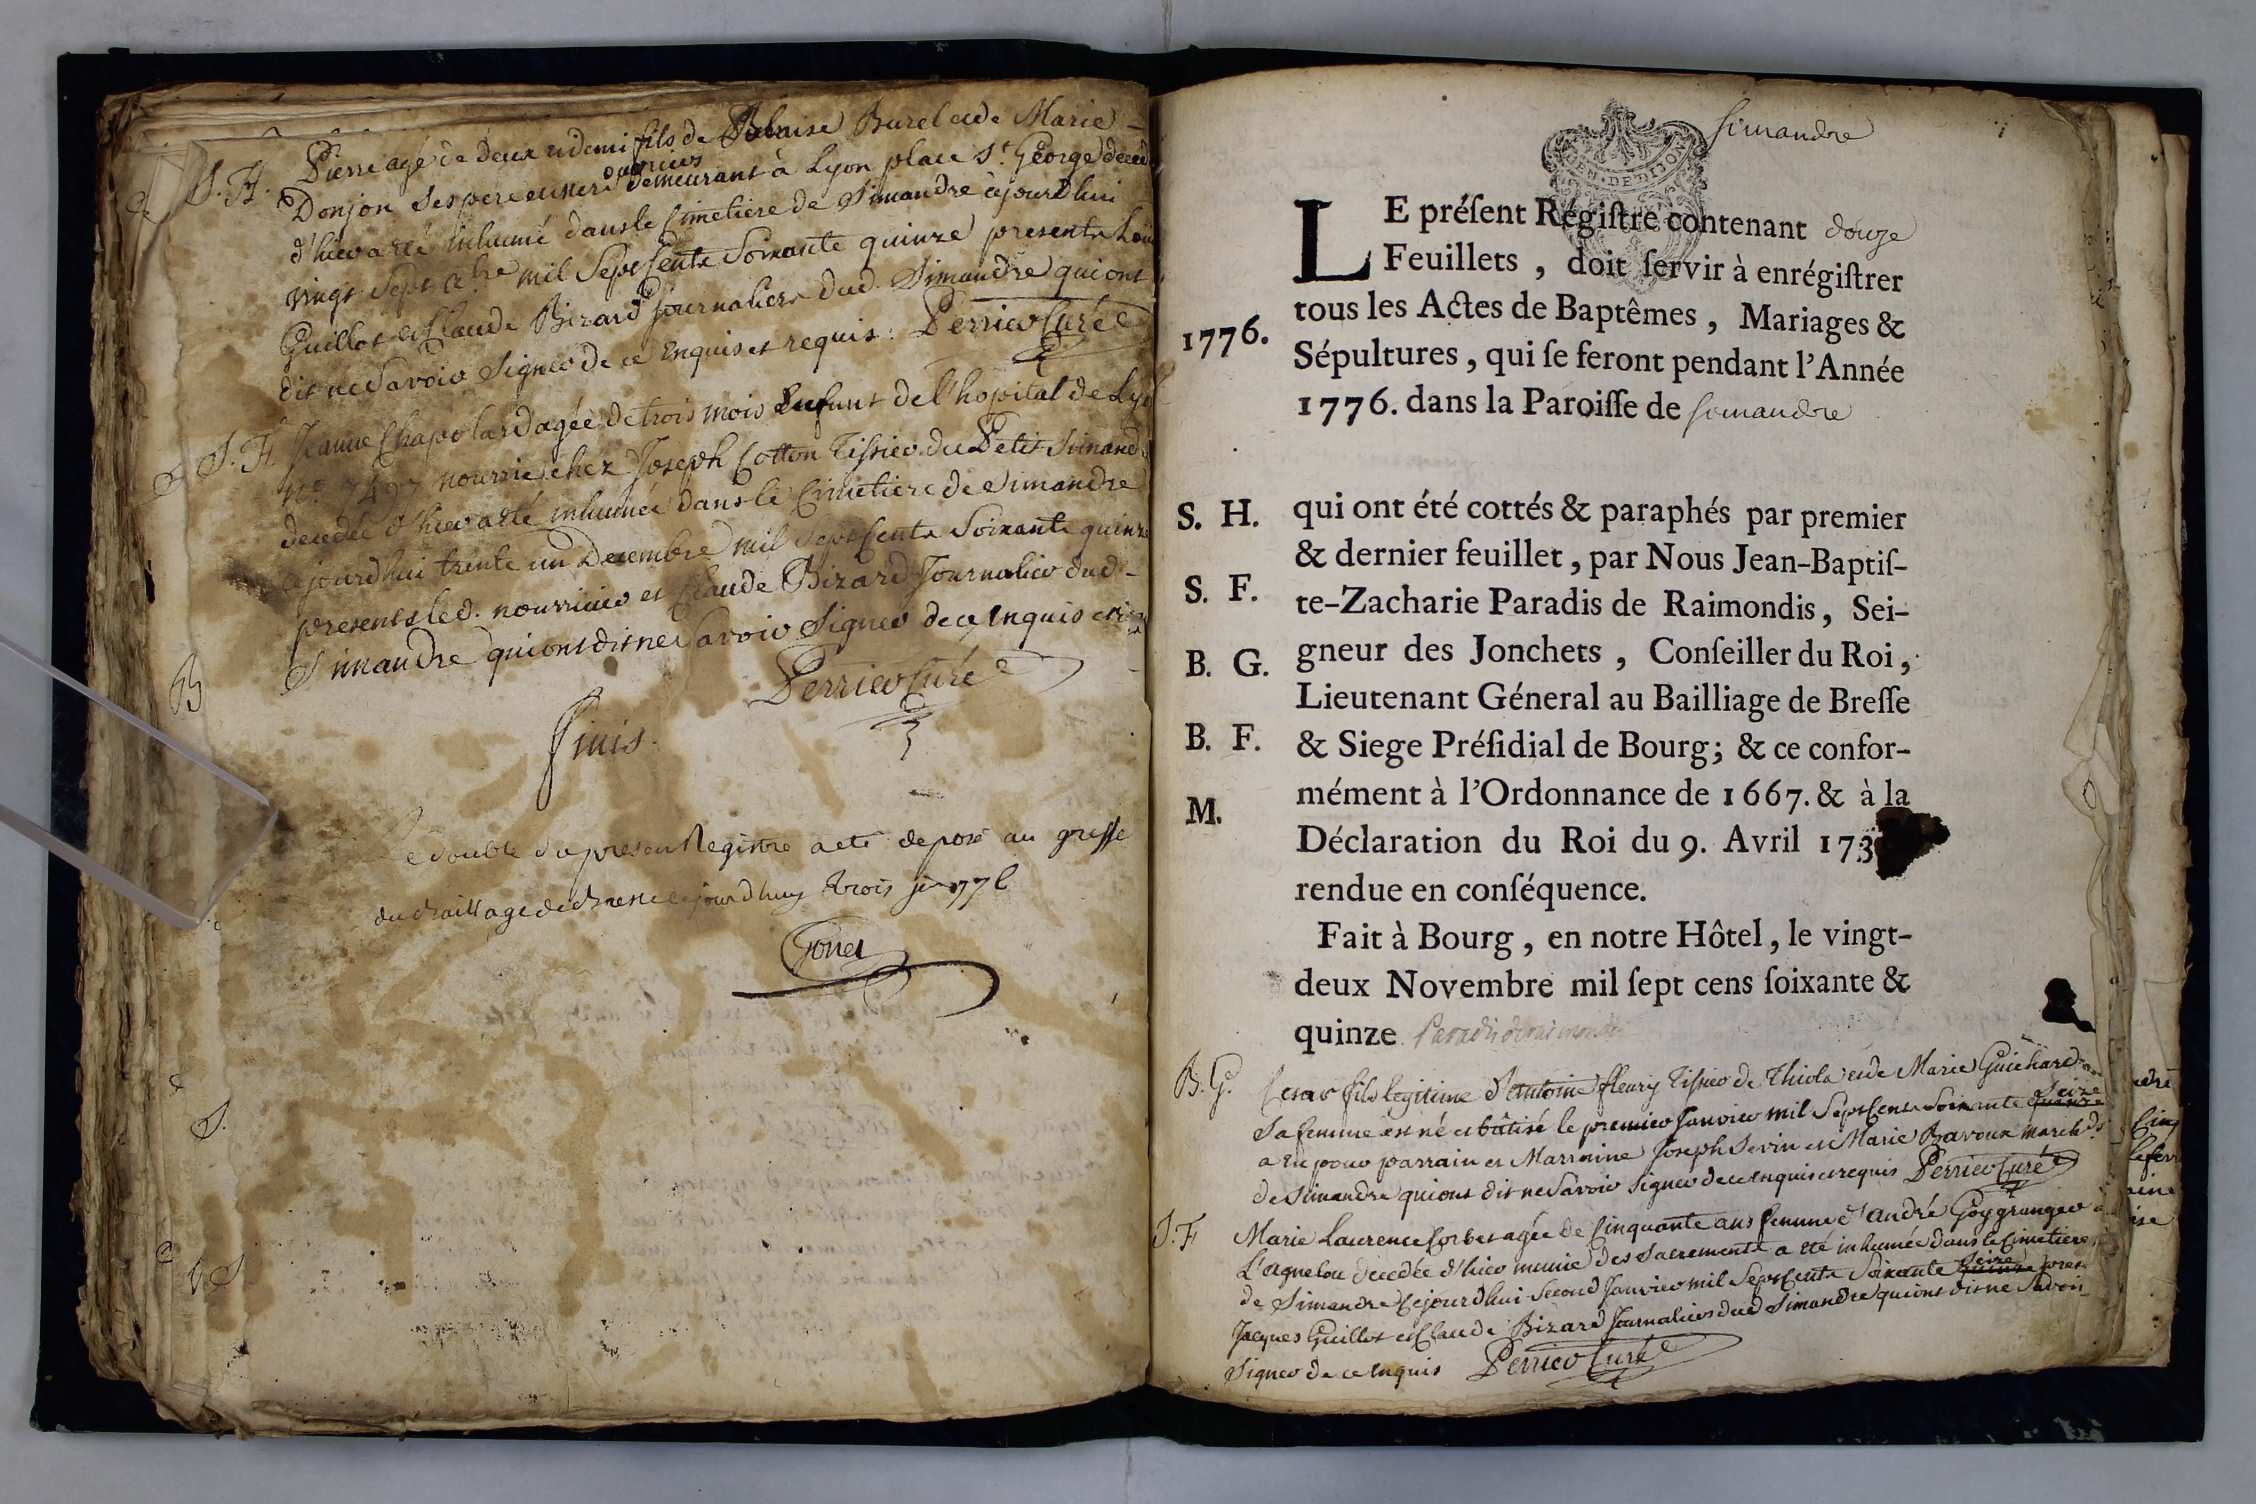 S. H. Pierre agé de deux et demi fils de Blaise Burel et de Marie
Donjon ses pere et mere ouvriers demeurant à Lyon place St. George decedé
d'hier a eté inhumé dans le Cimetiere de Simandre cejourd'hui
vingt sept xbre mil Sept Cents Soixante quinze presents
Guillot et Claude Bizard Journaliers dud. Simandre qui ont
dit ne Savoir Signer de ce enquis et requis. Perrier Curé
S. F. Jeanne Chapolard agée de trois mois Enfant de l'hopital de Lyon
nourrie chez Joseph Cotton Tissier du Petit Simandre
decedée d'hier a eté inhumée dans le Cimetiere de Simandre
cejourd'hui trente un Decembre mil Sept Cents Soixante quinze
presents led. nourricier et Claude Bizard Journalier dud
Simandre qui ont dit ne Savoir Signer de ce enquis et
Perrier Curé
Finis.
Le double du present Registre a eté deposé au greffe
du Bailliage de Bresse cejourd'huy trois 1776
S.
Simandre
GEN. DE DIJON
LE préſent Régiſtre contenant douze
Feuillets , doit ſervir à enrégiſtrer
tous les Actes de Baptêmes , Mariages &
1776.
Sépultures , qui ſe feront pendant l'Année
1776. dans la Paroiſſe de Simandre
S. H. qui ont été cottés & paraphés par premier
& dernier feuillet , par Nous Jean-Baptiſ-
S. F. te-Zacharie Paradis de Raimondis , Sei-
B. G. gneur des Jonchets , Conſeiller du Roi ,
Lieutenant Géneral au Bailliage de Breſſe
B. F. & Siege Préſidial de Bourg ; & ce confor-
mément à l'Ordonnance de 1667. & à la
M.
Déclaration du Roi du 9. Avril 173
rendue en conſéquence.
Fait à Bourg , en notre Hôtel , le vingt-
deux Novembre mil ſept cens ſoixante &
quinze Paradis de Raimondis
B. G. Cesar fils legitime d'Antoine fleury Tissier de Thiola et de Marie Guichard
Sa femme est né et bâtisé le premier Janvier mil Sept Cents Soixante Seize
a eu pour parrain et Marraine Joseph Sevin et Marie Bavoux march.ds
de Simandre qui ont dit ne Savoir Signer de ce enquis et requis Perrier Curé
S. F. Marie Laurence Corbet agée de Cinquante ans femme d'André Goy granger à
L'agnelou decedée d'hier munie des Sacrements a eté inhumée dans le Cimetiere
de Simandre Cejourd'hui Second Janvier mil Sept Cents Soixante Seize pres.
Jacques Guillot et Claude Bizard Journaliers dud Simandre qui ont dit ne Savoir
Signer de ce enquis Perrier Curé